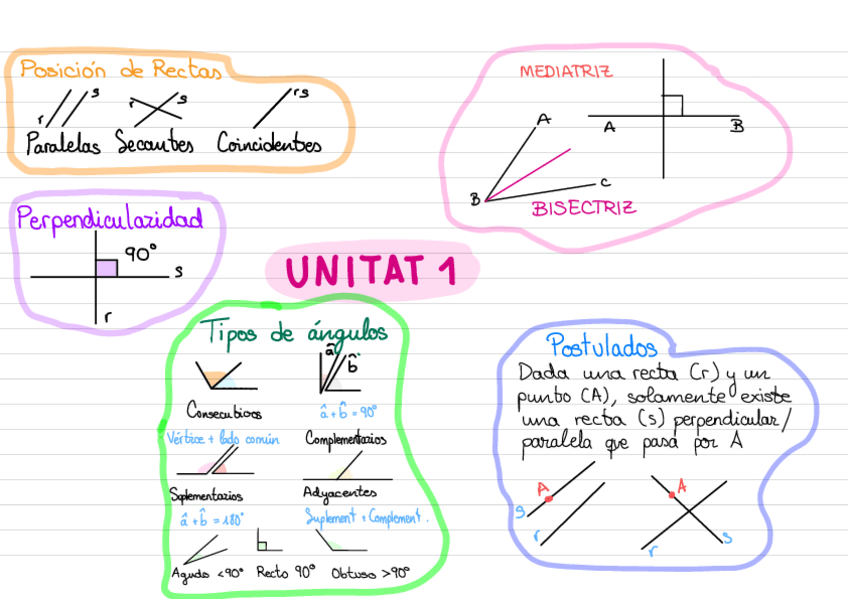 Posición de Rectas
r s r s rs
Paralelas Secantes Coincidentes
MEDIATRIZ
A B
A
B C
BISECTRIZ
Perpendicularidad
90°
s
r
UNITAT 1
Tipos de ángulos
â b̂
Consecutivos
Vértice + lado común
â + b̂ = 90°
Complementarios
Suplementarios
â + b̂ = 180°
Adyacentes
Suplement + Complement.
Agudo <90° Recto 90° Obtuso >90°
Postulados
Dada una recta (r) y un
punto (A), solamente existe
una recta (s) perpendicular/
paralela que pasa por A
A A
s r r s